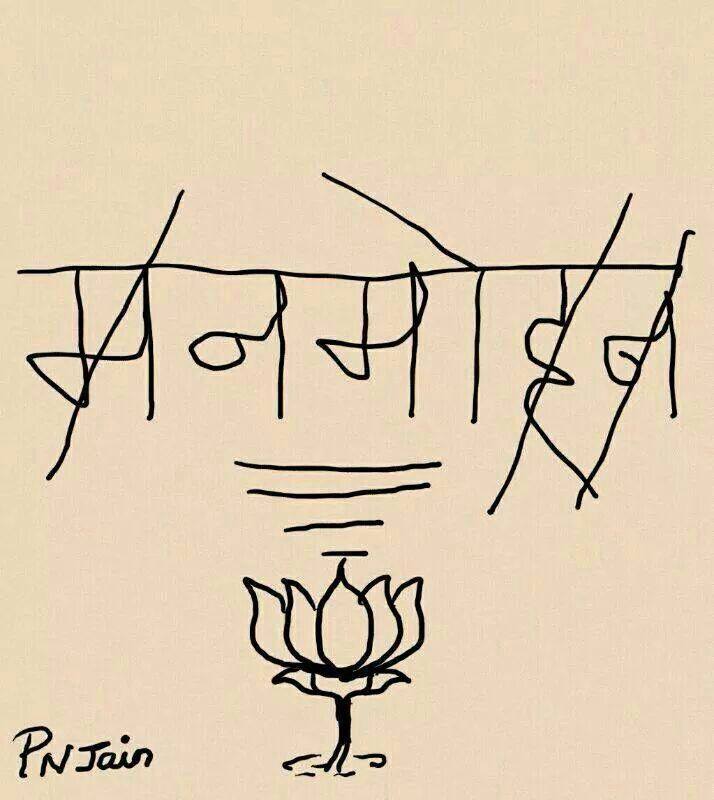 मनमोहन
PN Jain